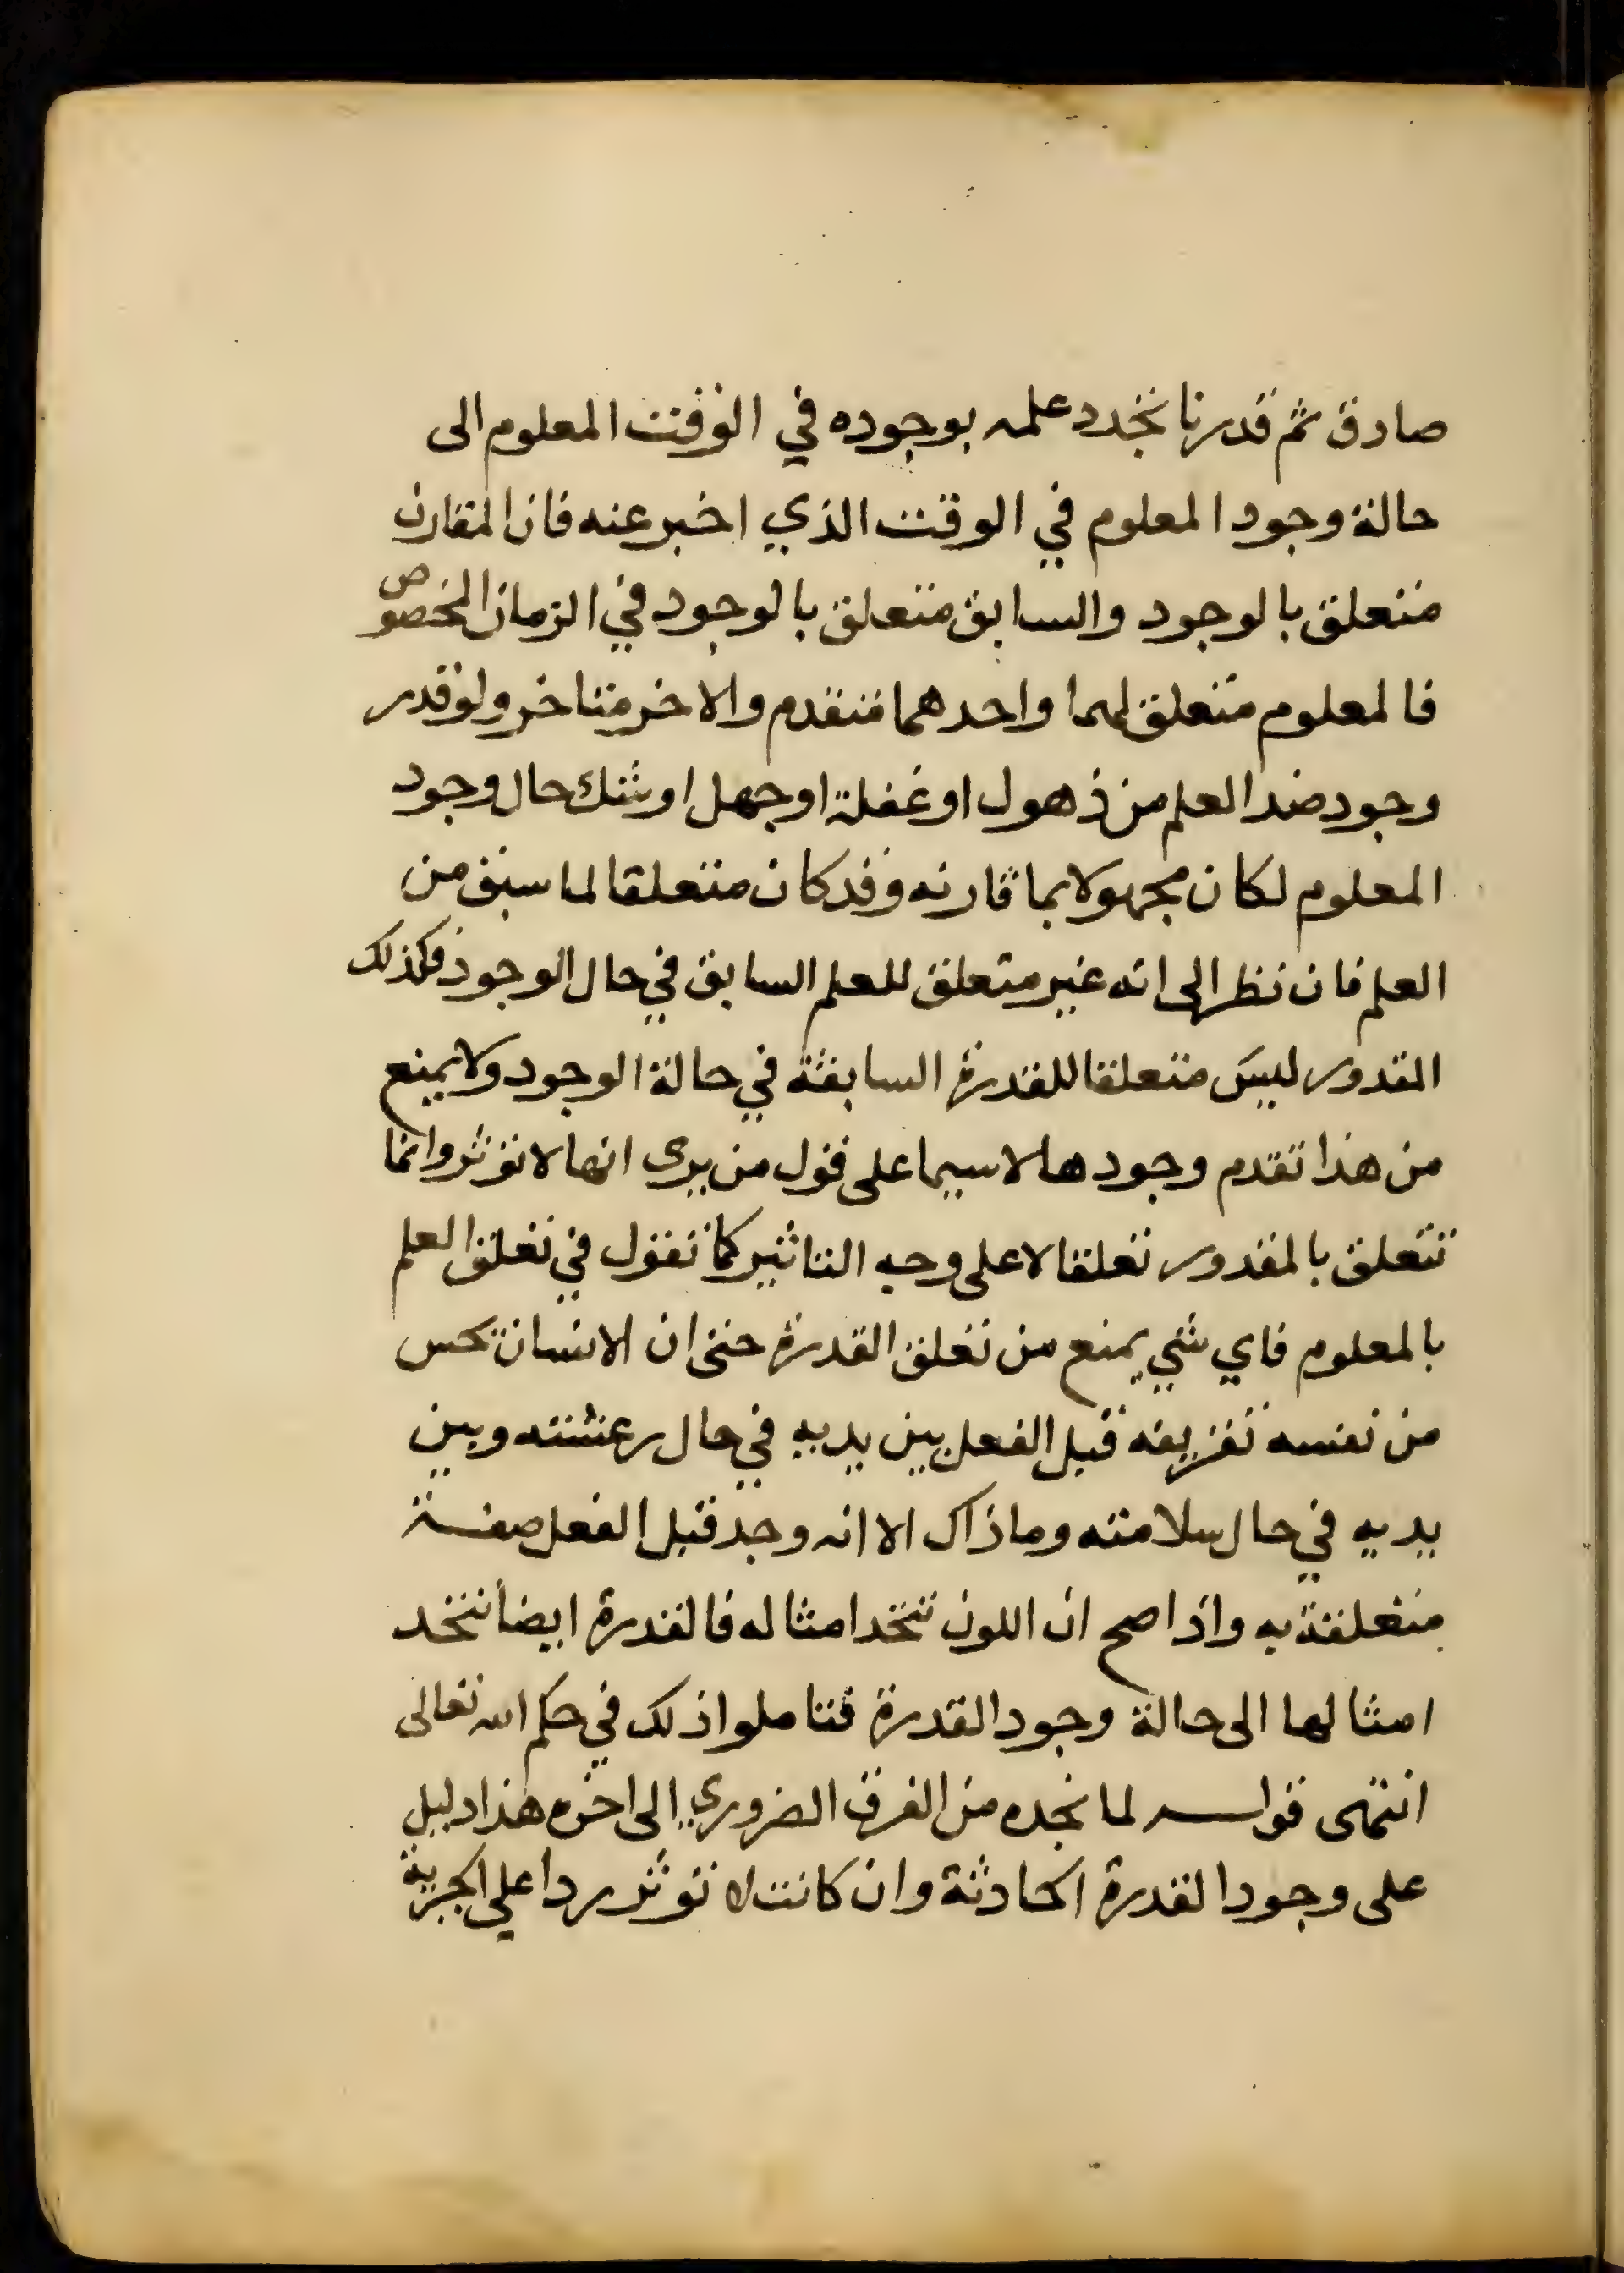 صادق ثم قدرنا تجدد علمه بوجوده في الوقت المعلوم الى
حالة وجود المعلوم في الوقت الذي اخبر عنه فان المقارن
متعلق بالوجود والسابق متعلق بالوجود في الزمان المخصوص
فالمعلوم متعلق لهما واحدهما متقدم والاخر متاخر ولو قدر
وجود ضد العلم من ذهول او غفلة او جهل او شك حال وجود
المعلوم لكان مجهولا بما قارنه وقد كان متعلقا لما سبق من
العلم فان نظر الى انه غير متعلق للعلم السابق في حال الوجود فكذلك
المقدور ليس متعلقا للقدرة السابقة في حالة الوجود ولا يمنع
من هذا تقدم وجودها لاسيما على قول من يرى انها لا تؤثر وانما
تتعلق بالمقدور تعلقا لا على وجه التاثير كما تقول في تعلق العلم
بالمعلوم فاي شي يمنع من تعلق القدرة حتى ان الانسان يحس
من نفسه تفريقه قبل الفعل بين يديه في حال رعشته وبين
يديه في حال سلامته وما ذاك الا انه وجد قبل الفعل صفة
متعلقة به واذا صح ان اللون تتخد امثاله فالقدرة ايضا تتخد
امثالها الى حالة وجود القدرة فتاملوا ذلك في حكم الله تعالى
انتهى قوله لما نجده من الفرق الضروري الى اخره هذا دليل
على وجود القدرة الحادثة وان كانت لا تؤثر ردا على الجبرية